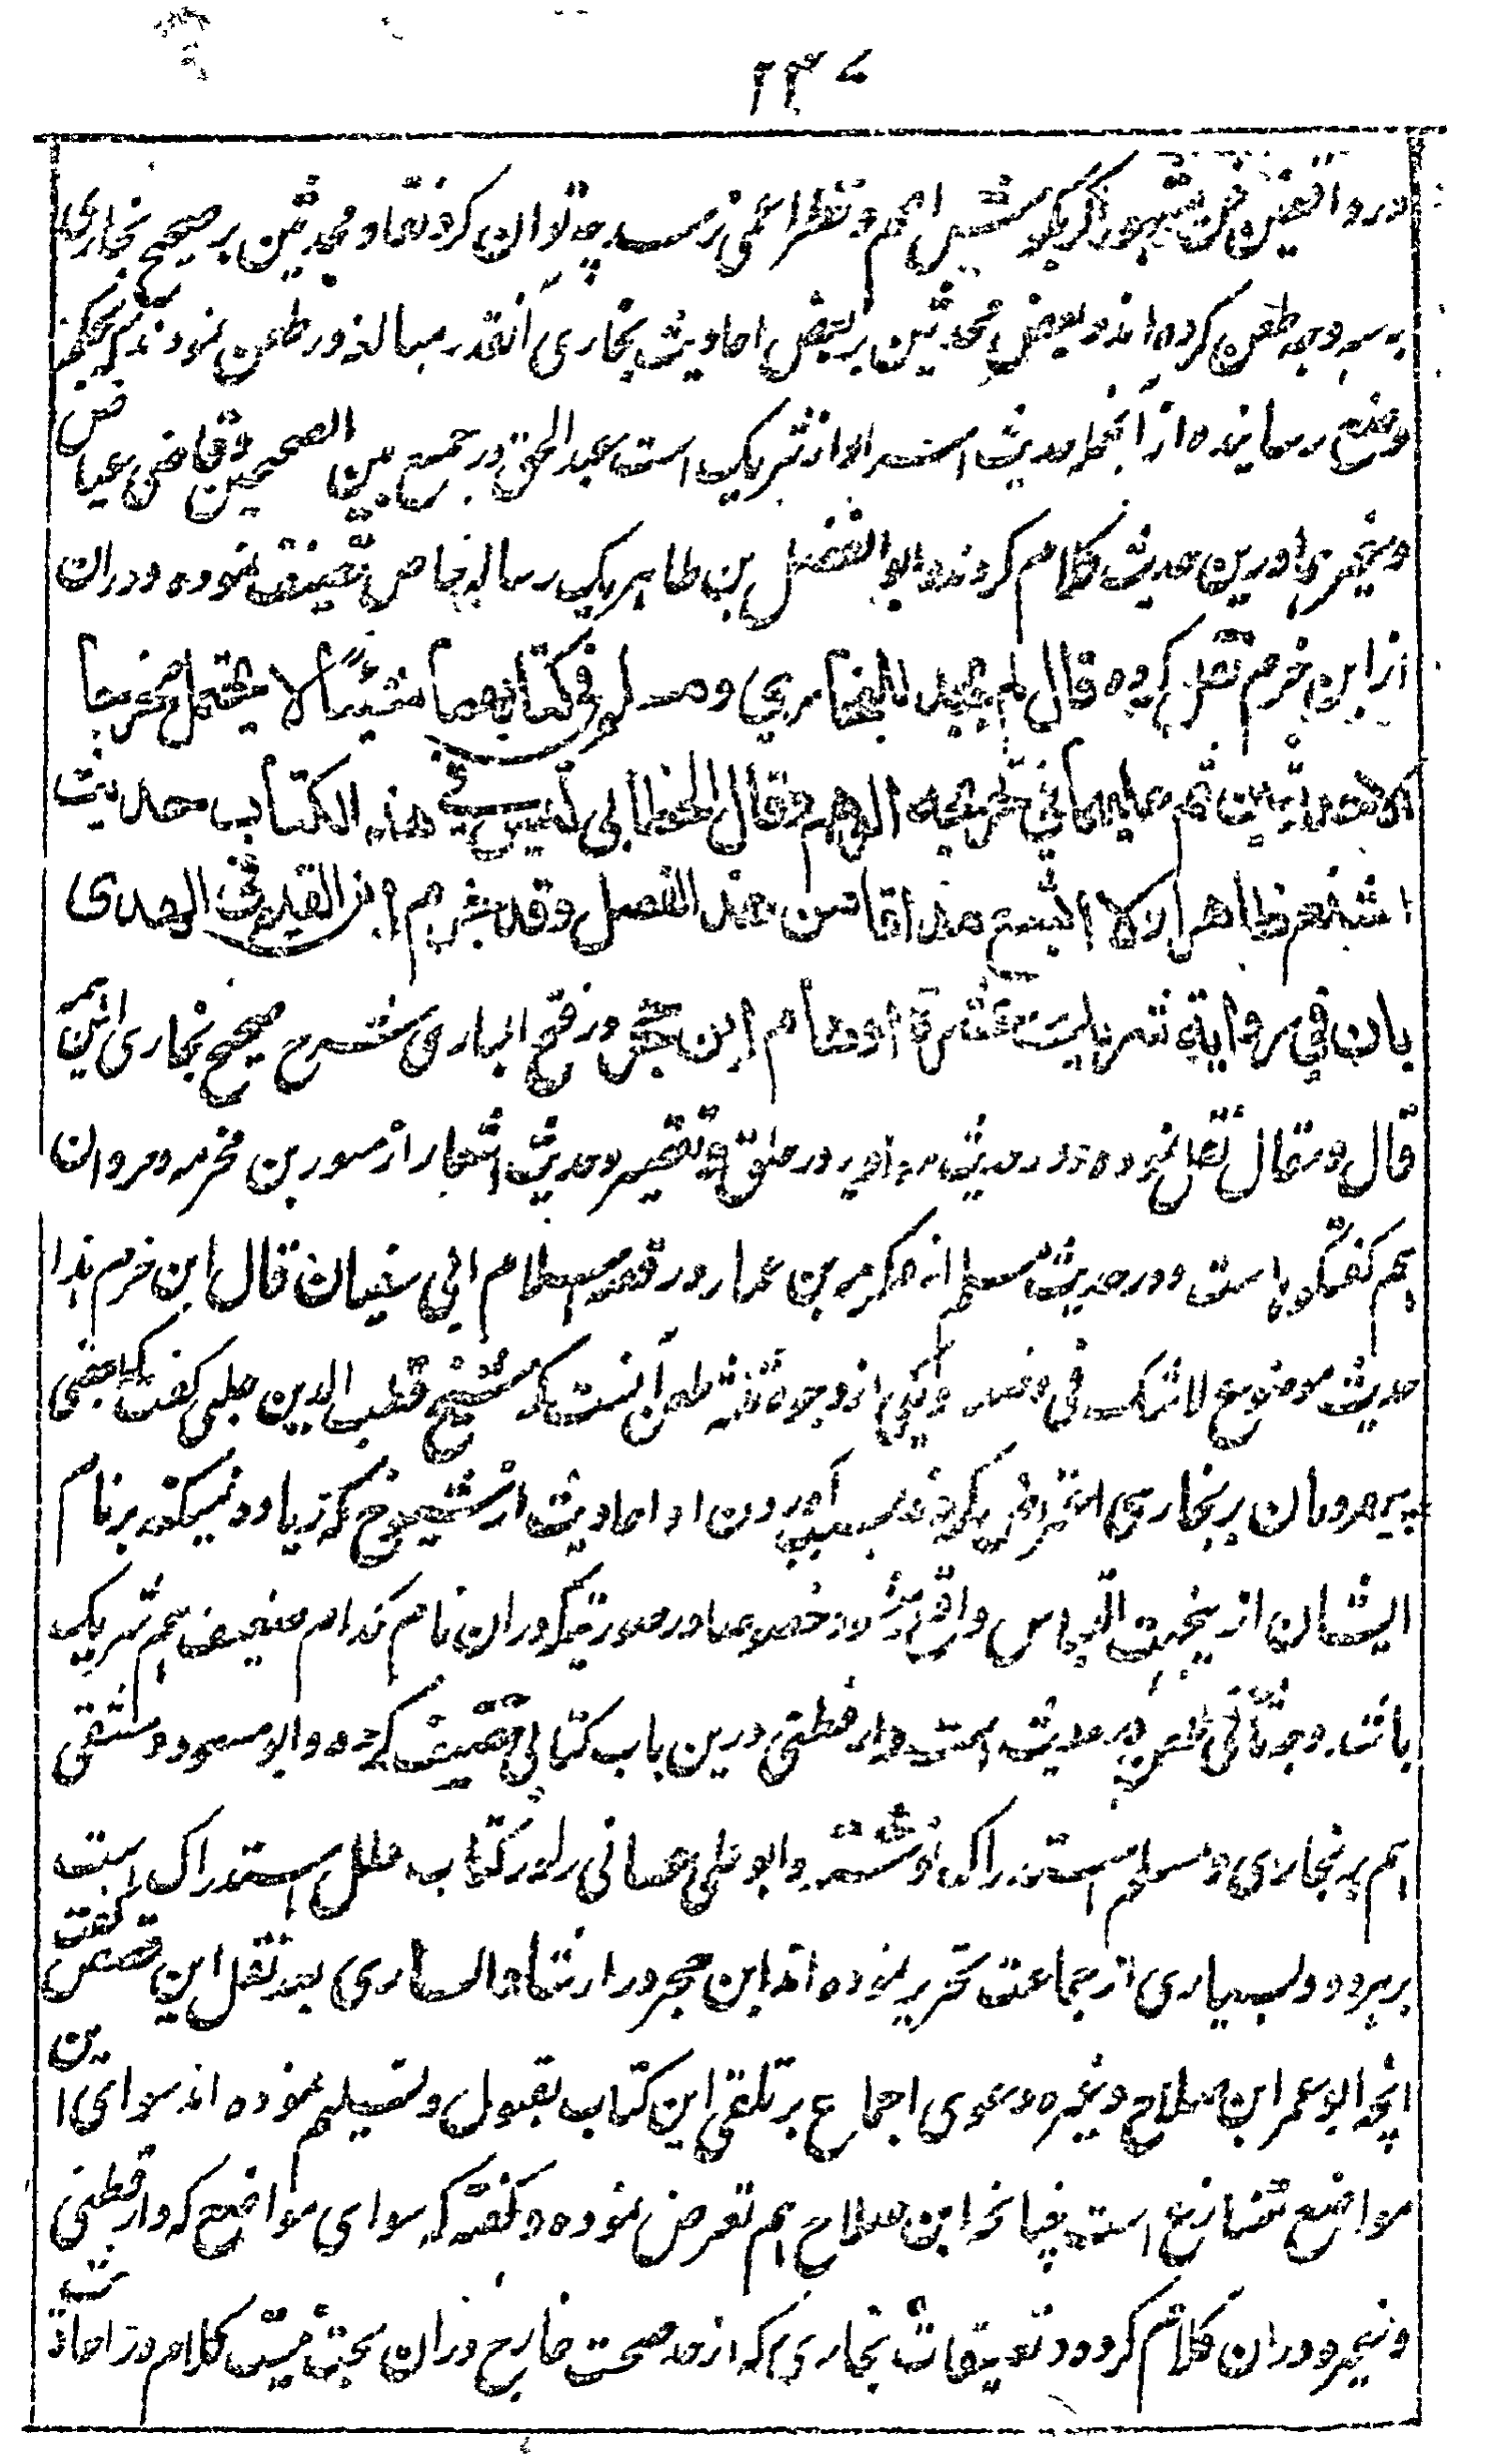 ۲۳۷
در واقفین فن مشهور اگر بگوش اصم و نظر اعمی نرسد چه توان کرد نقاد محدثین بر صحیح بخاری
به سه وجه طعن کرده اند و بعض محدثین بر بعض احادیث بخاری آنقدر مبالغه در طعن نمودند که بحکم
وضع رسانیده از آنجمله حدیث اسراء از شریک است عبد الحق در جمع بین الصحیحین و قاضی عیاض
و غیرها درین حدیث کلام کردند و ابو الفضل بن طاهر یک رساله خاص تصنیف نموده و دران
از ابن حزم نقل کرده قال لم یجد للبخاری ومسلم فی کتابهما شیئا لا یحتمل مخرجا
الا حدیثین ثم علیهما فی تخریجه الوهم وقال الخطابی لیس فی هذا الکتاب حدیث
اشنع ظاهرا ولا ابشع مذاقا من هذا الفصل وقد جزم ابن القیم فی الهدی
بان فی روایة شریک عشرة اوهام ابن حجر در فتح الباری شرح صحیح بخاری ائن همه
قال و مقال نقل نموده و در حدیث در حلق و تقصیر و حدیث اشعار از مسور بن مخرمه و مروان
هم گفتگوها است و در حدیث مسلم از عکرمه بن عمار در قصه اسلام ابی سفیان قال ابن حزم هذا
حدیث موضوع لا شک فی وضعه و یکی از وجوه ثلثه طعن آنست که شیخ قطب الدین حلبی گفت که بعضی
مردمان بر بخاری اعتراض کردند بسبب آوردن او احادیث از شیوخ که زیاده نمیکند بر نام
ایشان از ینجهت التباس واقع میشود خصوصا در صورتیکه دران نام کدام ضعیف هم شریک
باشد وجه ثانی طعن بر حدیث است دارقطنی درین باب کتابی تصنیف کرده و ابو مسعود دمشقی
هم بر بخاری و مسلم استدراک نوشته و ابو علی غسانی را در کتاب علل استدراک است
بر هر دو و بسیاری از جماعت تحریر نموده اند ابن حجر در ارشاد الساری بعد نقل این قصص گفت
انچه ابو عمر ابن صلاح و غیره دعوی اجماع بر تلقی این کتاب بقبول و تسلیم نموده اند سوای این
مواضع متنازع است چنانچه ابن صلاح هم تعرض نموده و گفته که سوای مواضع که دارقطنی
و غیره دران کلام کرده و تعلیقات بخاری که از حد صحت خارج دران بحث نیست کلام در احادیث